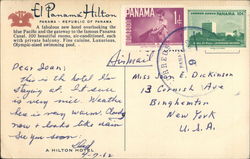 El Panamá Hilton
PANAMA • REPUBLIC OF PANAMA
A fabulous new hotel overlooking the
blue Pacific and the gateway to the famous Panama
Canal. 300 beautiful rooms, air-conditioned, each
with private balcony. Fine cuisine. Luxurious,
Olympic-sized swimming pool.
PANAMA 1¢
PANAMA 10¢
Airmail
Dear Jean:
This is the hotel I'm
staying at. It sure
is very nice. Weather
here is very warm. Cloudy
now & looks like rain
See you soon:
4-9-62
Miss Jean E. Dickinson
13 Cornish Ave
Binghamton
New York
U.S.A.
A HILTON HOTEL